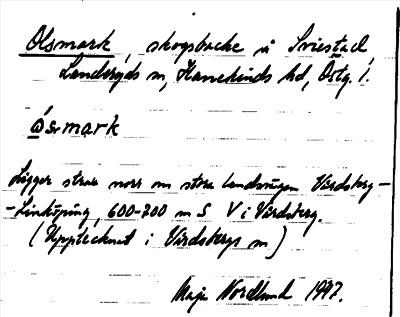 Olsmark, skogsbacke i Sviestad
Landeryds sn, Hanekinds hd, Östg. l.
ósmark
Ligger strax norr om stora landsvägen Vårdsberg-
-Linköping, 600-700 m S V i Vårdsberg.
(Upptecknat i Vårdsbergs sn)
Maja Nordlund 1947.